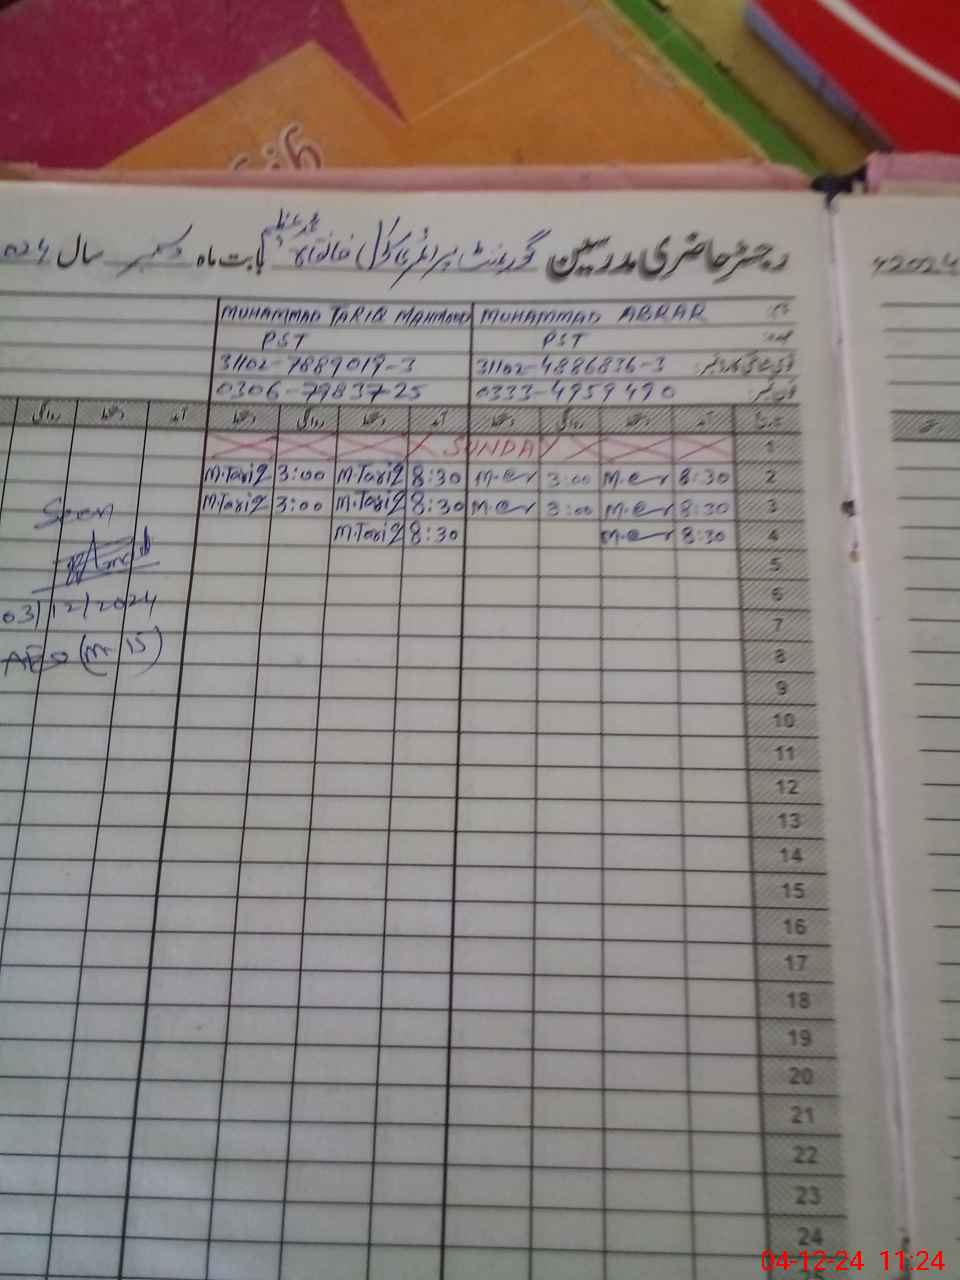 رجسٹر حاضری مدرسین گورنمنٹ پرائمری سکول بابت ماہ دسمبر سال 2024
MUHAMMAD TARIQ MAHMOOD MUHAMMAD ABRAR نام
PST PST عہدہ
31102-7889019-3 31102-4886836-3
0306-7983725 0333-4959490 فون نمبر
روانگی دستخط آمد دستخط روانگی دستخط آمد دستخط روانگی دستخط آمد تاریخ
SUNDAY 1
M.Tariq 3:00 M.Tariq 8:30 3:00 8:30 2
M.Tariq 3:00 M.Tariq 8:30 3:00 8:30 3
M.Tariq 8:30 8:30 4
5
6
7
8
9
10
11
12
13
14
15
16
17
18
19
20
21
22
23
24
Seen
03/12/2024
AEO (M 15)
2024
04-12-24 11:24